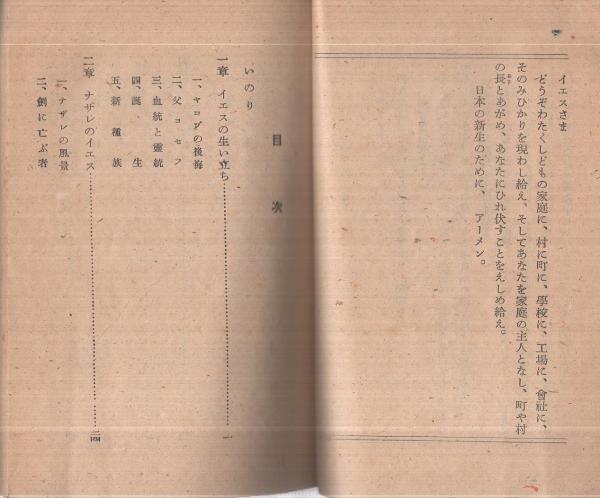 イエスさま
どうぞわたくしどもの家庭に、村に町に、學校に、工場に、會社に、
そのみひかりを現わし給え、そしてあなたを家庭の主人となし、町や村
の長とあがめ、あなたにひれ伏すことをえしめ給え。
日本の新生のために、アーメン。
目次
いのり
一章 イエスの生い立ち……一
一、ヤコブの後悔
二、父ヨセフ
三、血統と靈統
四、誕生
五、新種族
二章 ナザレのイエス……二四
一、ナザレの風景
二、劍に亡ぶ者